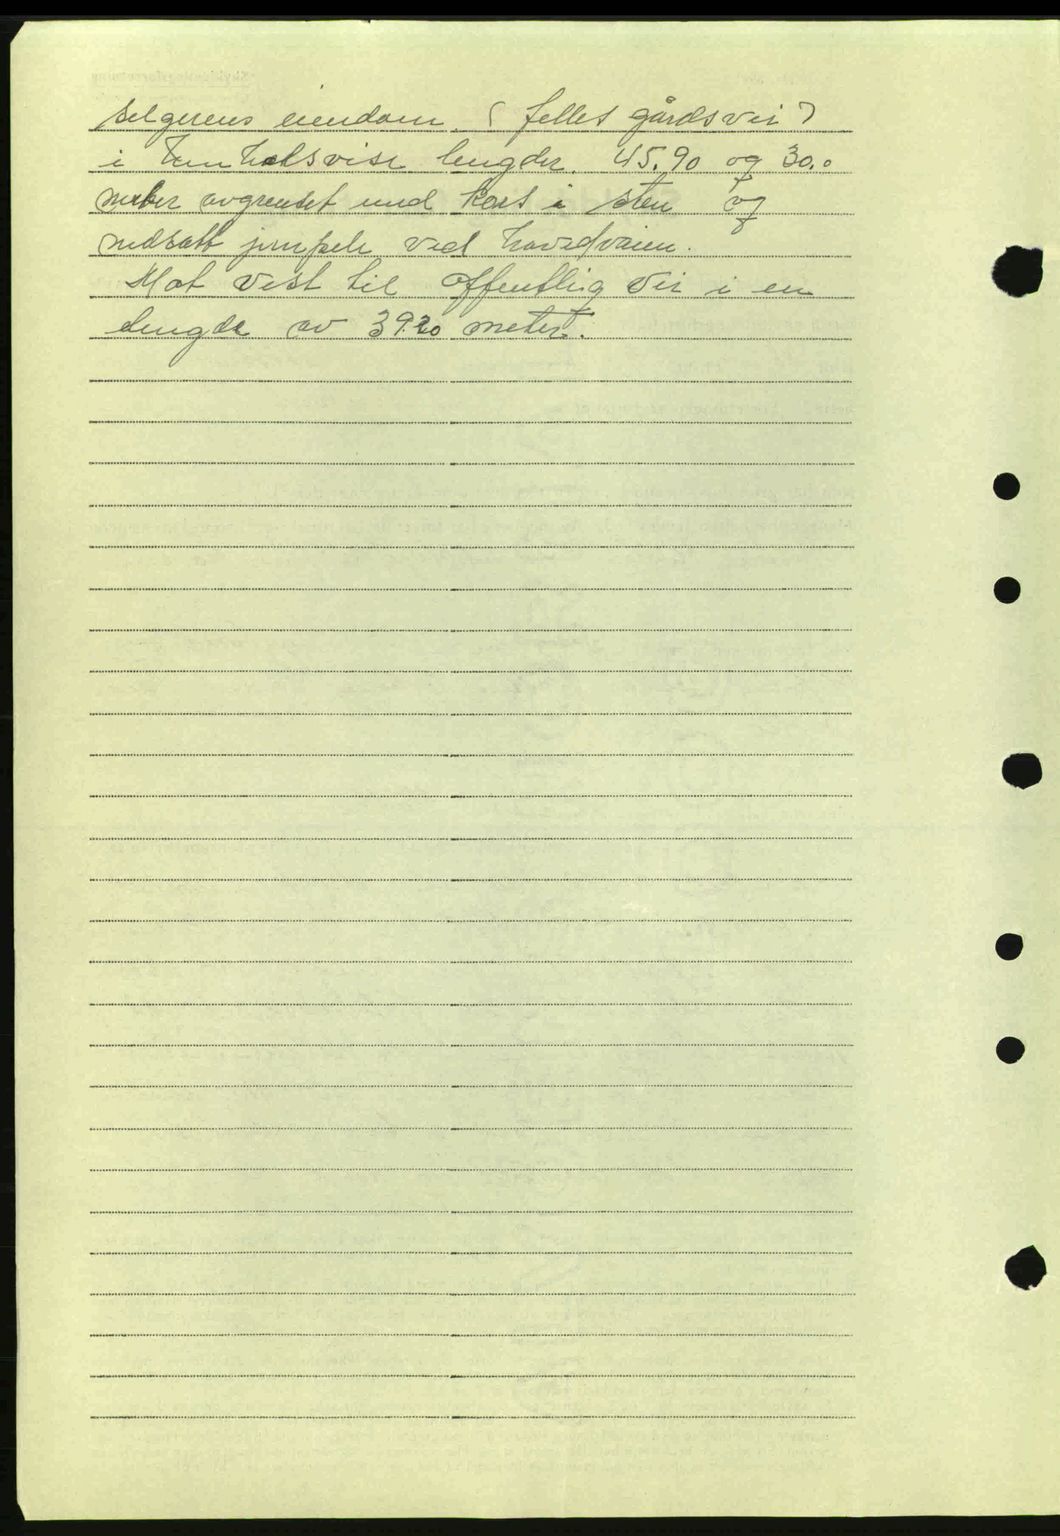 selgerens eiendom (felles gårdsvei)
i henholdsvise lengder. 45,90 og 30.0
meter avgrenset med kors i sten og
nedsatt jernpele ved hovedveien.
Mot vest til offentlig vei i en
lengde av 39.20 meter.